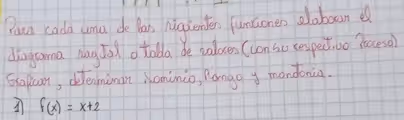 Para cada una de las siguientes funciones elaboran el
diagrama sagital o tabla de valores (con su respectivo proceso)
Grafican, determinan Dominio, Rango y monotonía.
f(x) = x+2